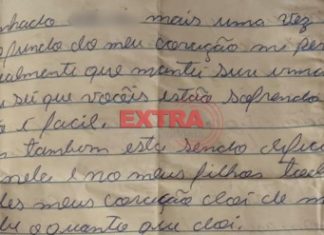 nhado mais uma vez
ofundo do meu coração mi per
almente que mantei seu irma
u sei que vocêis estão sofrendo
ão é facil.
EXTRA
m também esta sendo dificil
nele e no meus filhos tod
les meus coração doi de m
be o quanto que doi.